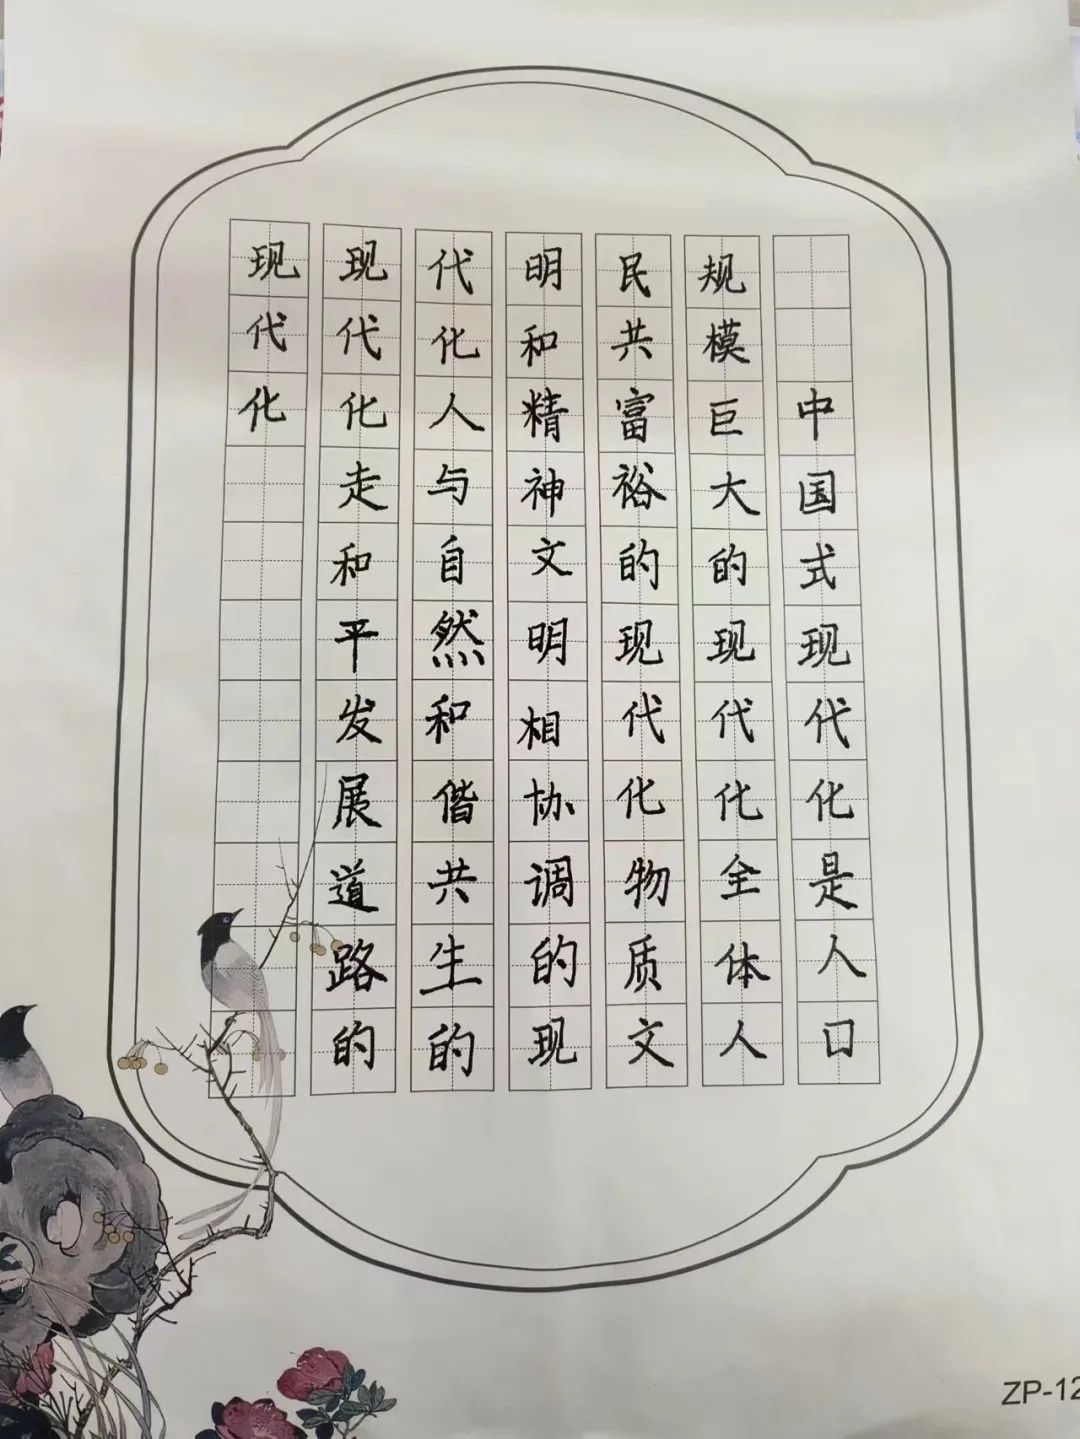 中国式现代化是人口
规模巨大的现代化全体人
民共富裕的现代化物质文
明和精神文明相协调的现
代化人与自然和偕共生的
现代化走和平发展道路的
现代化
ZP-12